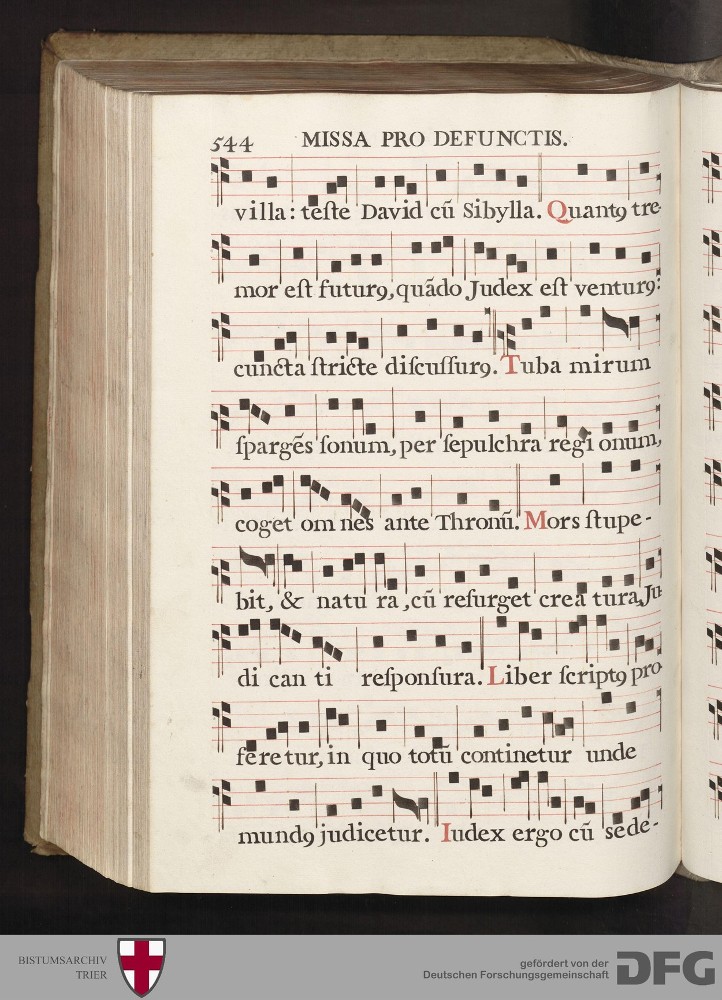 544 MISSA PRO DEFUNCTIS.
villa: teſte David cũ Sibylla. Quantꝯ tre-
mor eſt futurꝯ, quãdo Judex eſt venturꝯ:
cuncta ſtricte diſcuſſurꝯ. Tuba mirum
ſpargẽs ſonum, per ſepulchra regi onum,
coget om nes ante Thronũ. Mors ſtupe-
bit, & natu ra, cũ reſurget crea tura, Ju
di can ti reſponſura. Liber ſcriptꝯ pro
fe re tur, in quo totũ continetur unde
mundꝯ judicetur. Iudex ergo cũ sede-
BISTUMSARCHIV
TRIER
gefördert von der
Deutschen Forschungsgemeinschaft
DFG